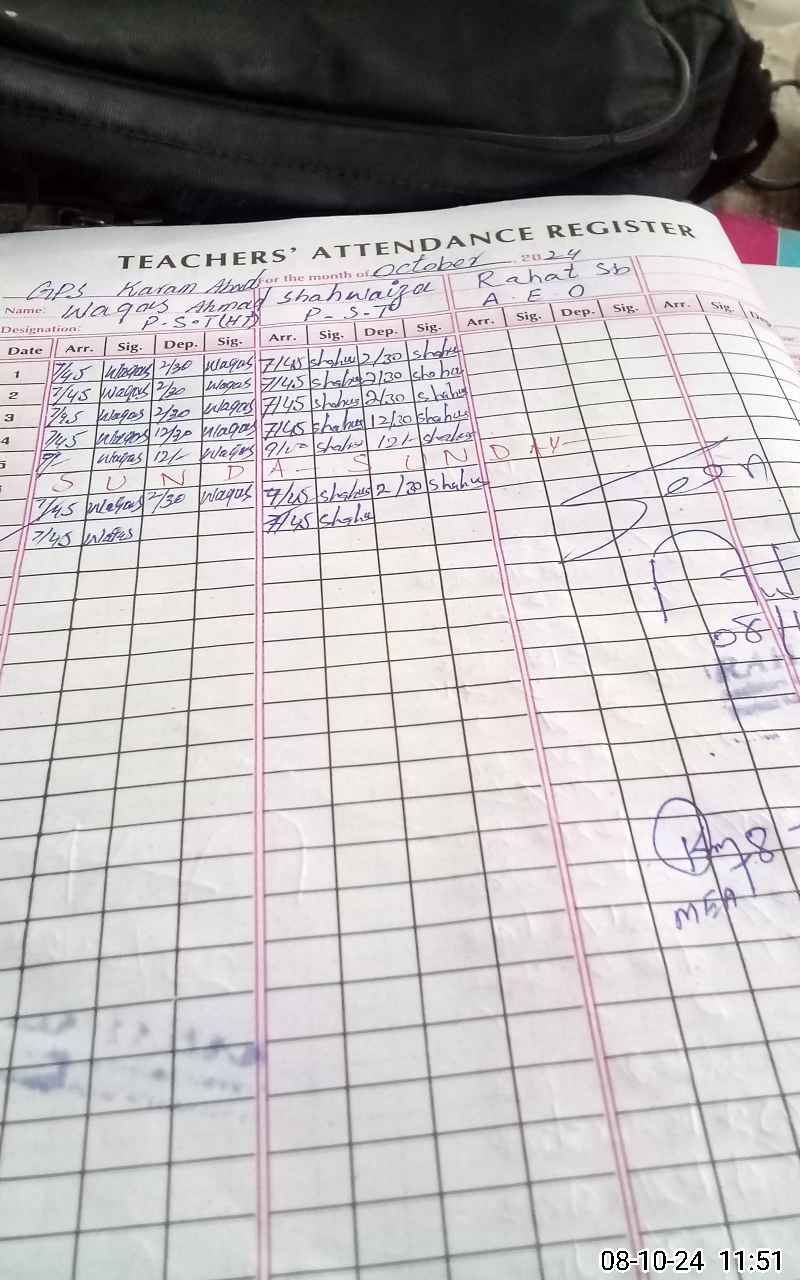 TEACHERS' ATTENDANCE REGISTER
GPS Karam Abad for the month of October 2024
Name: Waqas Ahmad Shahwaiza Rahat Sb
Designation: P.S.T(HT) P-S-T A.E.O
Date Arr. Sig. Dep. Sig. Arr. Sig. Dep. Sig. Arr. Sig. Dep. Sig. Arr. Sig.
1 7/45 Waqas 2/30 Waqas 7/45 Shahw 2/30 Shahw
2 7/45 Waqas 2/30 Waqas 7/45 Shahw 2/30 Shahw
3 7/45 Waqas 2/30 Waqas 7/45 Shahw 2/30 Shahw
4 7/45 Waqas 12/30 Waqas 7/45 Shahw 12/30 Shahw
5 9/- Waqas 12/- Waqas Shahw 12/- Shahw
S U N D A - S U N D A Y
7/45 Waqas 2/30 Waqas 7/45 Shahw 2/30 Shahw
7/45 Waqas 7/45 Shahw
Seen
08/1
MEA
08-10-24 11:51